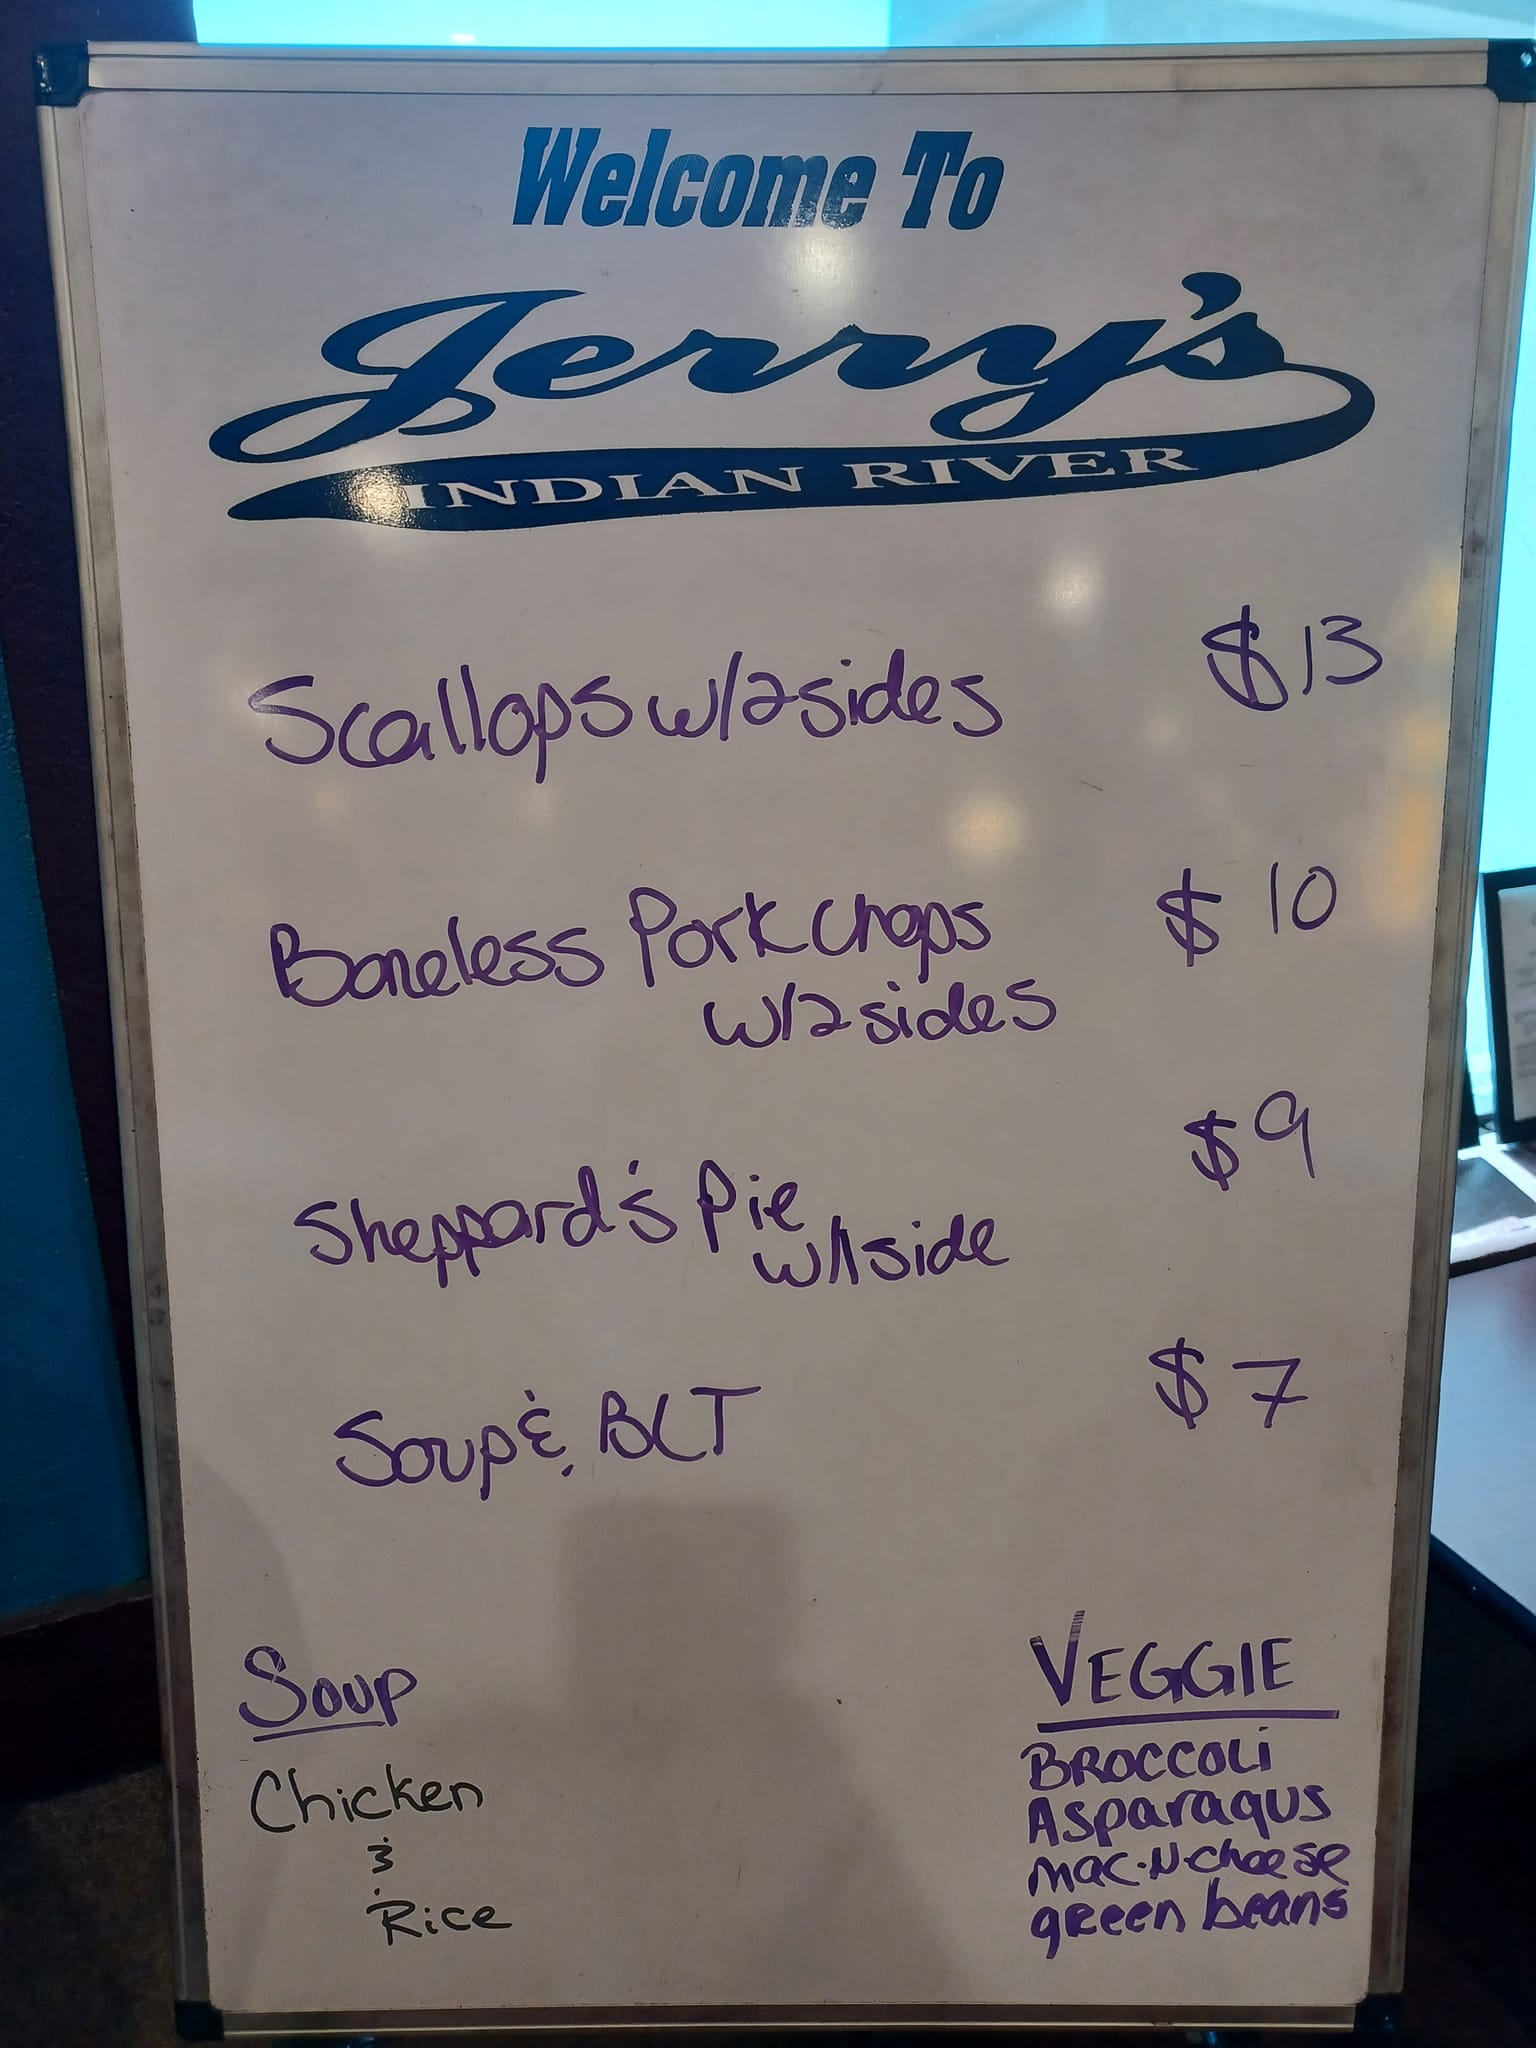 Welcome To
Jerry's
INDIAN RIVER
Scallops w/2sides $13
Boneless Pork chops $10
w/2sides
Sheppard's Pie $9
w/1side
Soup & BLT $7
Soup
Chicken
&
Rice
VEGGIE
BROCCOLi
Asparagus
mac-N-cheese
green beans